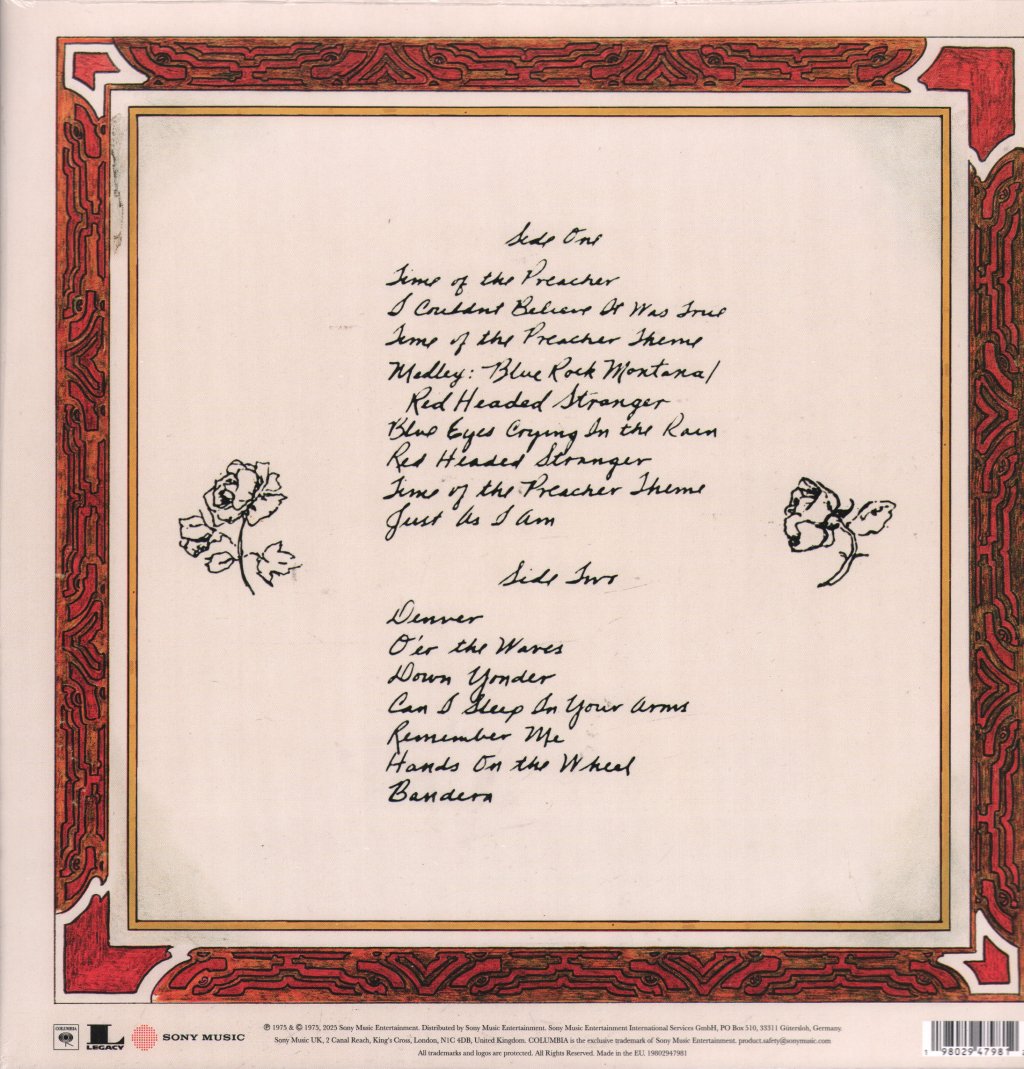 Side One
Time of the Preacher
I Couldnt Believe It Was True
Time of the Preacher Theme
Medley: Blue Rock Montana/
Red Headed Stranger
Blue Eyes Crying In the Rain
Red Headed Stranger
Time of the Preacher Theme
Just As I Am
Side Two
Denver
O'er the Waves
Down Yonder
Can I Sleep In Your Arms
Remember Me
Hands On the Wheel
Bandera
COLUMBIA
L
LEGACY
SONY MUSIC
℗ 1975 & © 1975, 2025 Sony Music Entertainment. Distributed by Sony Music Entertainment. Sony Music Entertainment International Services GmbH, PO Box 510, 33311 Gütersloh, Germany.
Sony Music UK, 2 Canal Reach, King's Cross, London, N1C 4DB, United Kingdom. COLUMBIA is the exclusive trademark of Sony Music Entertainment. product.safety@sonymusic.com
All trademarks and logos are protected. All Rights Reserved. Made in the EU. 19802947981
1 98029 47981 2